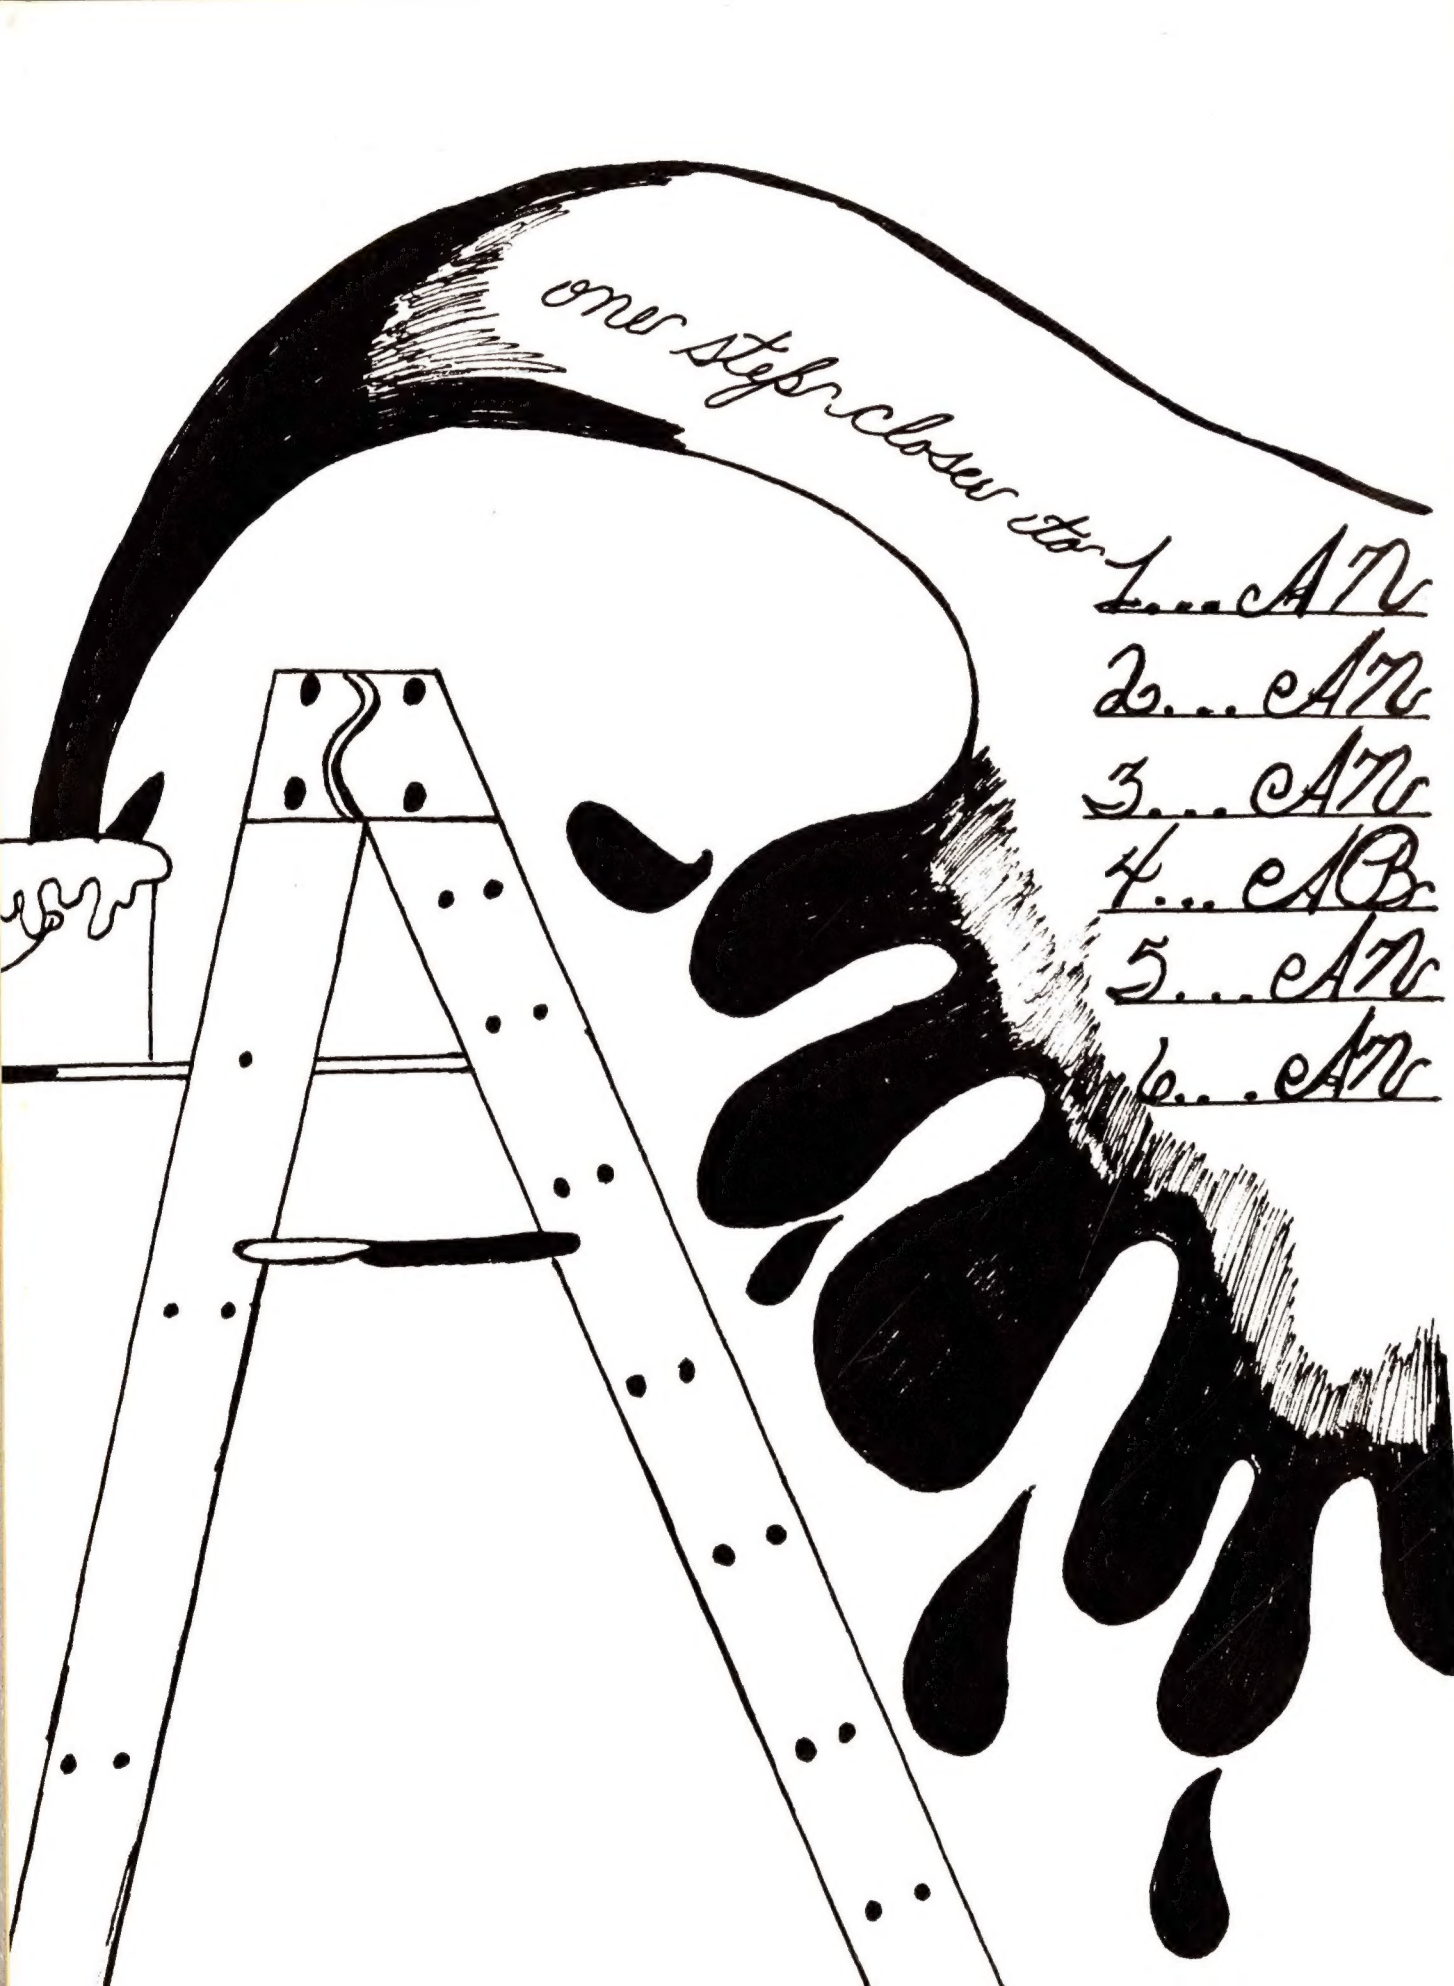 one step closer to
1... AN
2... AN
3... AN
4... AB
5... AN
6... AN